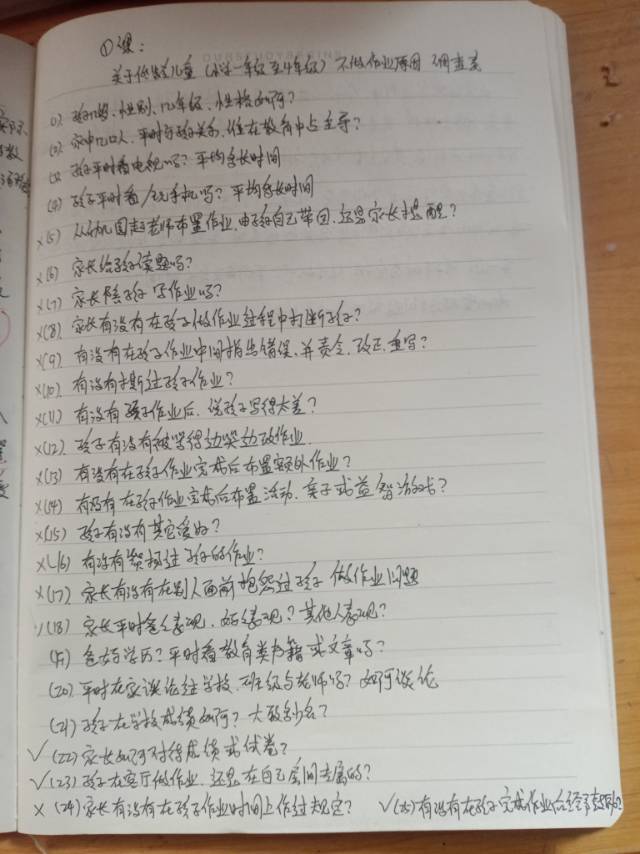 ①课：
关于低龄儿童（小学一年级至4年级）不做作业原因 调查表
(1) 孩子几岁、性别、几年级、性格如何？
(2) 家中几口人，平时与孩子关系，谁在教育中占主导？
(3) 孩子平时看电视吗？平均多长时间
(4) 孩子平时看/玩手机吗？平均多长时间
×(5) 从幼儿园起老师布置作业，由孩子自己带回，还是家长提醒？
×(6) 家长给孩子读题吗？
×(7) 家长陪孩子写作业吗？
×(8) 家长有没有在孩子做作业过程中打断孩子？
×(9) 有没有在孩子作业中间指出错误，并责令，改正，重写？
×(10) 有没有撕过孩子作业？
×(11) 有没有孩子作业后，说孩子写得太差？
×(12) 孩子有没有被骂得边哭边改作业
×(13) 有没有在孩子作业完成后布置额外作业？
×(14) 有没有在孩子作业完成后布置活动，亲子或益智游戏？
×(15) 孩子有没有其它爱好？
×(16) 有没有赞扬过孩子的作业？
×(17) 家长有没有在别人面前抱怨过孩子做作业问题
√(18) 家长平时爸爸表现，妈妈表现？其他人表现？
(19) 爸妈学历？平时看教育类书籍或文章吗？
(20) 平时在家谈论过学校，班级与老师吗？如何谈论
(21) 孩子在学校成绩如何？大致多少名？
√(22) 家长如何对待成绩或试卷？
√(23) 孩子在客厅做作业，还是在自己房间专属的？
×(24) 家长有没有在孩子作业时间上作过规定？ √(25) 有没有在孩子完成作业后经常